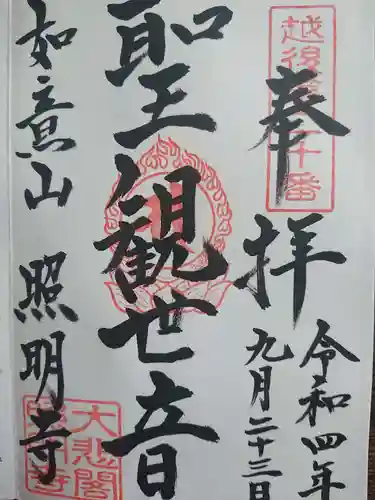 越後第二十番
奉拝
令和四年
九月二十三日
聖観世音
如意山 照明寺
大悲閣
照明寺